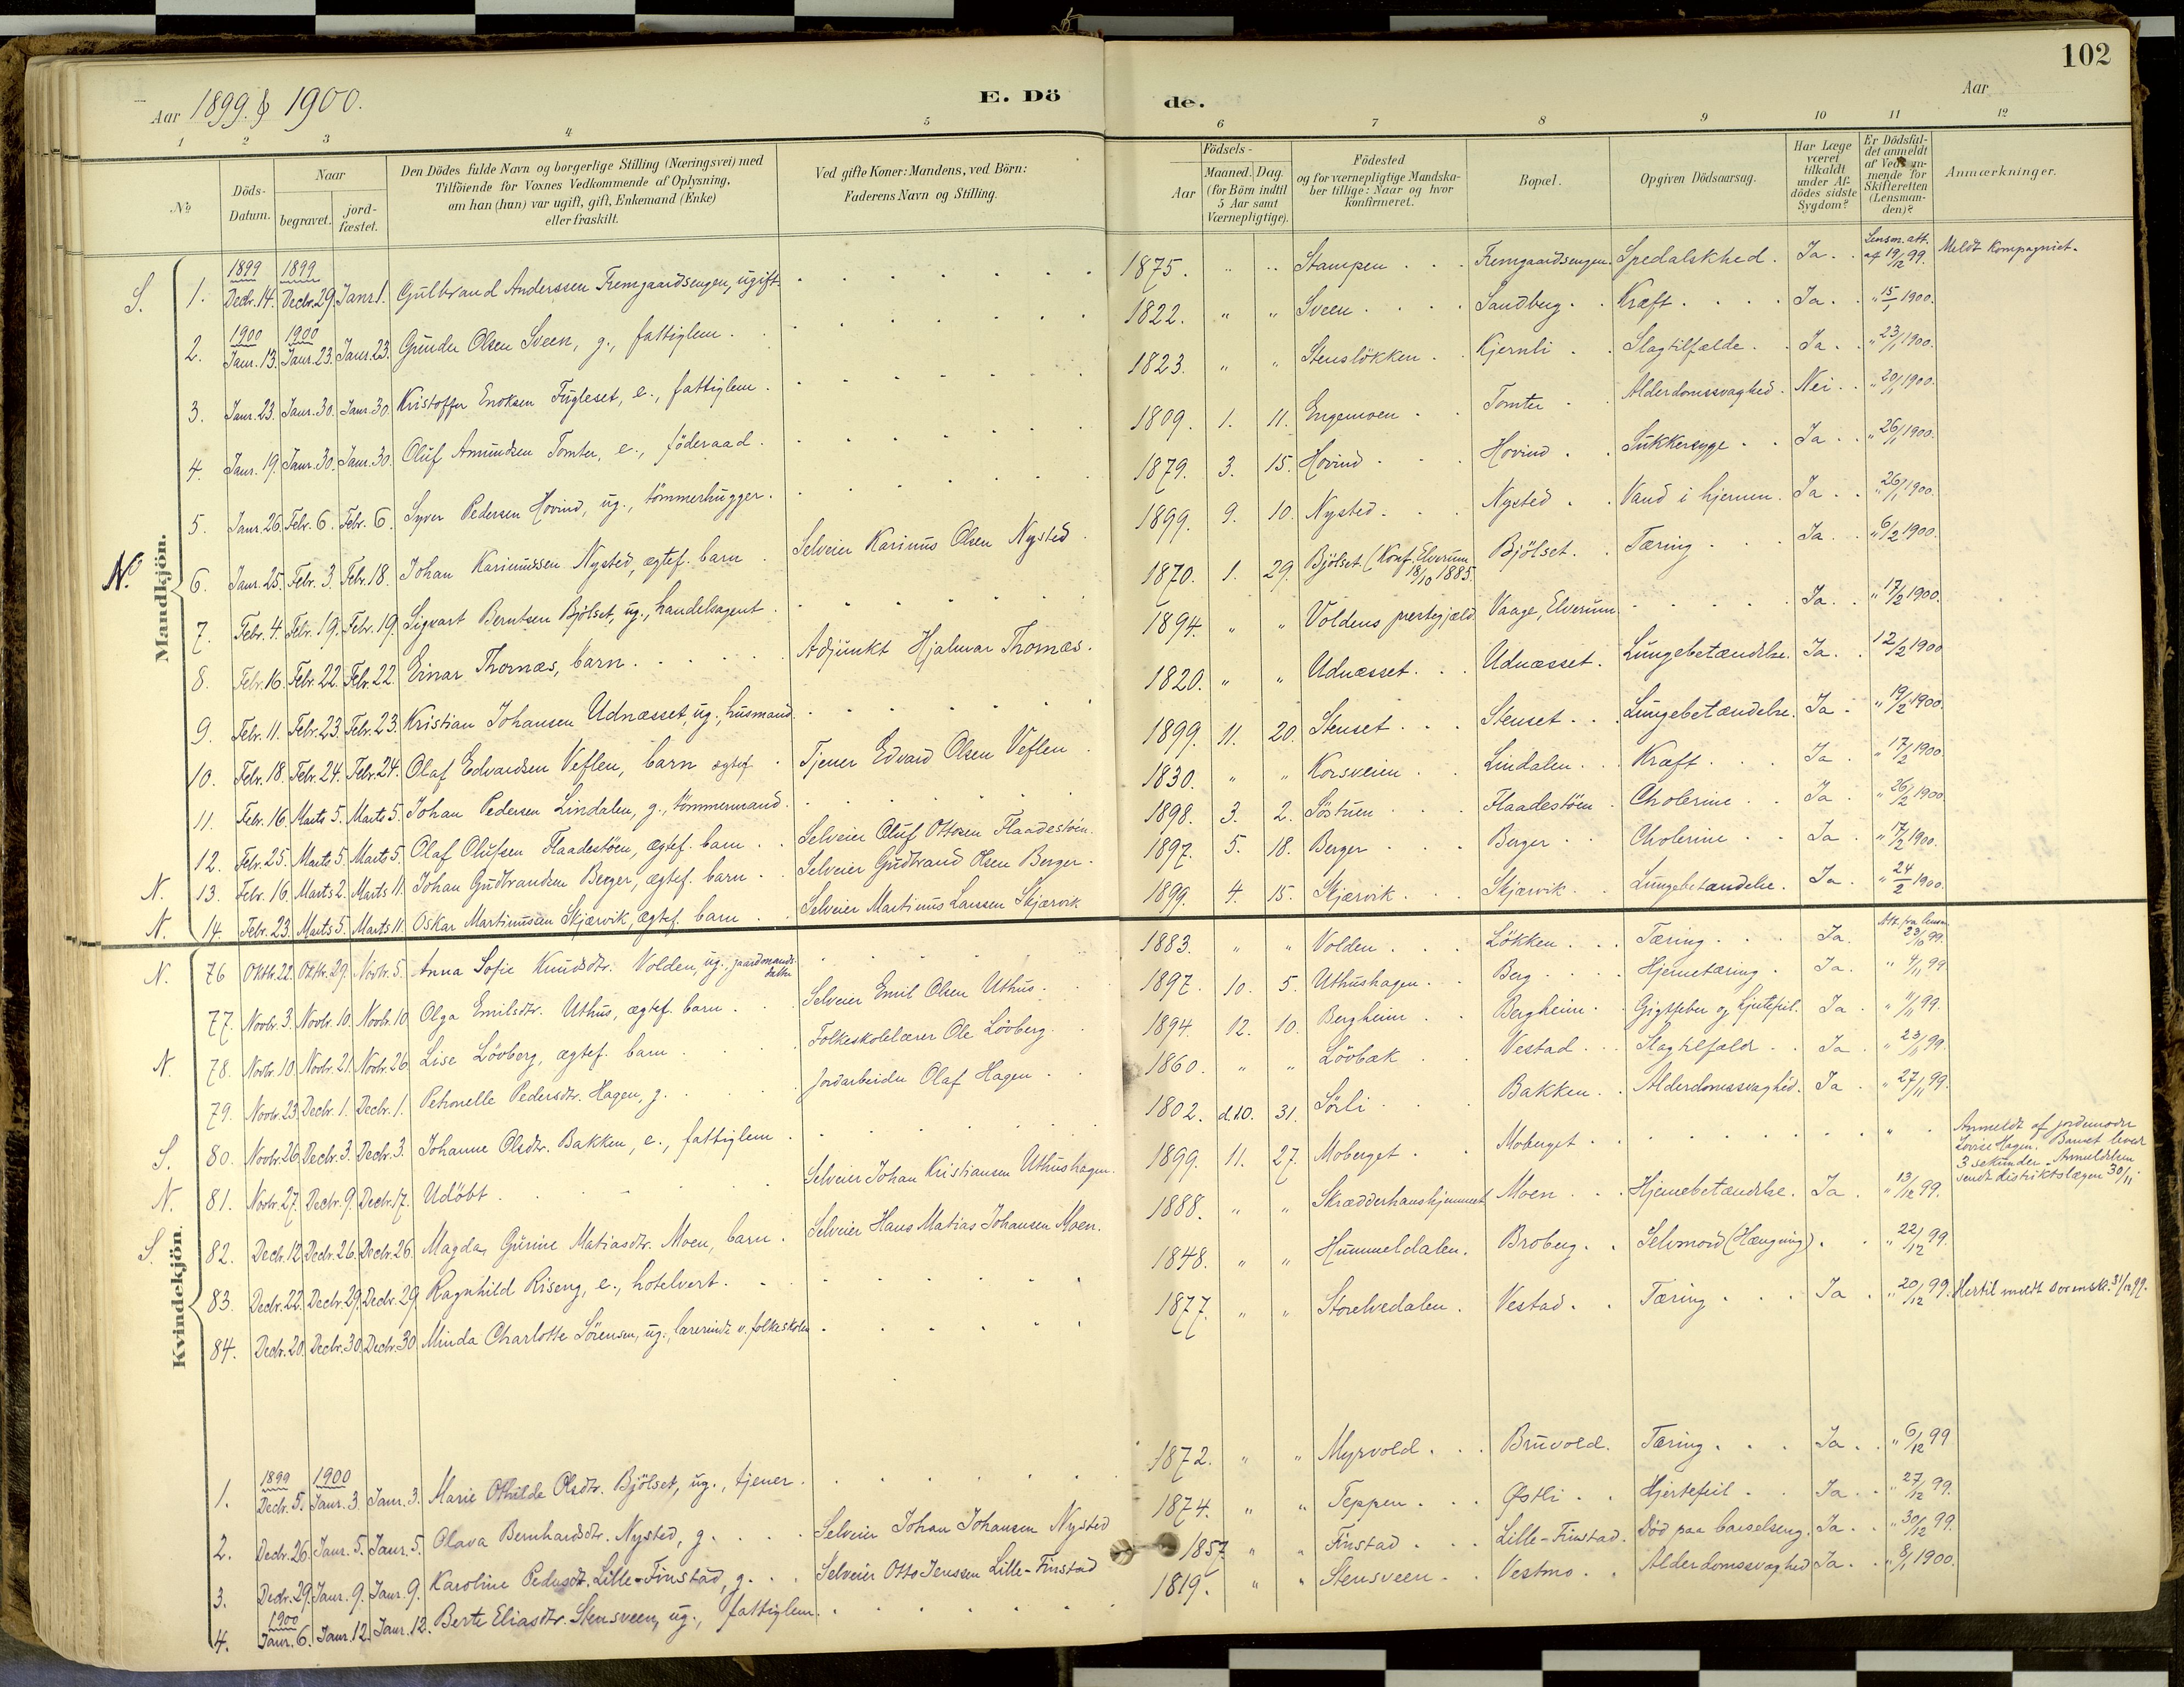 102
Aar 1899 & 1900.
E. Dö
de.
Aar
1 2 3 4 5 6 7 8 9 10 11 12
No
Döds-Datum.
Naar
begravet.
jordfæstet.
Den Dödes fulde Navn og borgerlige Stilling (Næringsvei) med
Tilföiende for Voxnes Vedkommende af Oplysning,
om han (hun) var ugift, gift, Enkemand (Enke)
eller fraskilt.
Ved gifte Koner: Mandens, ved Börn:
Faderens Navn og Stilling.
Födsels-
Aar
Maaned. Dag.
(for Börn indtil
5 Aar samt
Værnepligtige).
Födested
og for værnepligtige Mandska-
ber tillige: Naar og hvor
Konfirmeret.
Bopæl.
Opgiven Dödsaarsag.
Har Læge
været
tilkaldt
under Af-
dödes sidste
Sygdom?
Er Dödsfal-
det anmeldt
af Vedkom-
mende for
Skifteretten
(Lensman-
den)?
Anmærkninger.
Mandkjön.
S. 1. 1899 Decbr. 14. 1899 Decbr. 29. Janr. 1. Gulbrand Anderssen Fremgaardsengen, ugift. 1875. " " Stampen Fremgaardsengen. Spedalskhed. Ja. Lensm. att. af 19/12 99. Meldt Kompagniet.
2. 1900 Janr. 13. 1900 Janr. 23. Janr. 23. Gunder Olsen Sveen, g., fattiglem. 1822. " " Sveen Sandberg. Kræft. Ja. " 15/1 1900.
3. Janr. 23. Janr. 30. Janr. 30. Kristoffer Enoksen Fugleset, e., fattiglem. 1823. " " Stenslökken. Kjernli Slagtilfælde. Ja. " 23/1 1900.
4. Janr. 19. Janr. 30. Janr. 30. Oluf Amundsen Tomter, e., föderaad. 1809. 1. 11. Engemoen Tomter Alderdomssvaghed. Nei. " 20/1 1900.
5. Janr. 26. Febr. 6. Febr. 6. Syver Pedersen Hovind, ug., tömmerhugger. 1879. 3. 15. Hovind Hovind Sukkersyge Ja. " 26/1 1900.
N. 6. Janr. 25. Febr. 3. Febr. 18. Johan Karinussen Nysted, ægtef. barn Selveier Karinus Olsen Nysted. 1899. 9. 10. Nysted. Nysted Vand i hjernen. Ja. " 26/1 1900.
7. Febr. 4. Febr. 19. Febr. 19. Sigvart Berntsen Bjölset, ug., handelsagent. 1870. 1. 29. Bjölset. (Konf. Elverum 18/10 1885. Bjölset. Tæring Ja. " 6/2 1900.
8. Febr. 16. Febr. 22. Febr. 22. Einar Thornæs, barn. Adjunkt Hjalmar Thornæs. 1894. " " Voldens prestegjæld. Vaage, Elverum Ja. " 17/2 1900.
9. Febr. 11. Febr. 23. Febr. 23. Kristian Johansen Udnæsset, ug., husmand. 1820. " " Udnæsset. Udnæsset. Lungebetændelse. Ja. 12/2 1900
10. Febr. 18. Febr. 24. Febr. 24. Olaf Edvardsen Veflen, barn ægtef. Tjener Edvard Olsen Veflen. 1899. 11. 20. Stenset Stenset Lungebetændelse. Ja. " 19/2 1900.
11. Febr. 16. Marts 5. Marts 5. Johan Pedersen Lindalen, g., tömmermand. 1830. " " Korsveien Lindalen. Kræft. Ja. " 17/2 1900.
12. Febr. 25. Marts 5. Marts 5. Olaf Olufsen Flaadestöen, ægtef. barn. Selveier Oluf Ottosen Flaadestöen. 1898. 3. 2. Söstuen Flaadestöen. Cholerine Ja. " 26/2 1900.
N. 13. Febr. 16. Marts 2. Marts 11. Johan Gudbrandsen Berger, ægtef. barn. Selveier Gudbrand Olsen Berger. 1897. 5. 18. Berger Berger Cholerine Ja. " 17/2 1900.
N. 14. Febr. 23. Marts 5. Marts 11. Oskar Martinussen Skjærvik, ægtef. barn. Selveier Martinus Larssen Skjærvik 1899. 4. 15. Skjærvik Skjærvik. Lungebetændelse. Ja. " 24/2 1900.
Kvindekjön.
N. 76 Oktbr. 22. Oktbr. 29. Novbr. 5. Anna Sofie Knudsdtr. Volden, ug., gaardmandsdatter 1883. " " Volden Lökken Tæring. Ja. Att. fra lensm. 23/10 99.
77. Novbr. 3. Novbr. 10. Novbr. 10 Olga Emilsdtr. Uthus, ægtef. barn. Selveier Emil Olsen Uthus. 1897. 10. 5. Uthushagen Berg Hjernetæring. Ja. " 4/11 99
N. 78. Novbr. 10. Novbr. 21. Novbr. 26 Lise Lövberg, ægtef. barn. Folkeskolelærer Ole Lövberg. 1894. 12. 10. Bergheim Bergheim. Gigtfeber og hjertefeil. Ja " 11/11 99.
79. Novbr. 23. Decbr. 1. Decbr. 1. Petronelle Pedersdtr. Hagen, g. Jordarbeider Olaf Hagen 1860. " " Lövbæk Vestad Slagtilfælde Ja " 23/11 99.
S. 80. Novbr. 26. Decbr. 3. Decbr. 3. Johanne Olsdtr. Bakken, e., fattiglem 1802. d.10. 31. Sörli Bakken. Alderdomssvaghed. Ja " 27/11 99.
N. 81. Novbr. 27. Decbr. 9. Decbr. 17. Udöbt Selveier Johan Kristiansen Uthushagen. 1899. 11. 27. Moberget Moberget " Anmeldt af jordemoder
Lovise Hagen. Barnet levede
3 sekunder. Anmeldelsen
sendt distriktslægen 30/11
S. 82. Decbr. 12. Decbr. 26. Decbr. 26. Magda Gurine Matiasdtr. Moen, barn. Selveier Hans Matias Johansen Moen. 1888. " " Skrædderhanshjemmet Moen Hjernebetændelse. Ja. " 13/12 99.
83. Decbr. 22. Decbr. 29. Decbr. 29. Ragnhild Riseng, e., hotelvert. 1848. " " Hummeldalen. Broberg. Selvmord (Hængning). " 22/12 99.
84. Decbr. 20. Decbr. 30. Decbr. 30. Minda Charlotte Sörensen, ug., lærerinde v. folkeskolen 1877. " " Storelvedalen. Vestad. Tæring Ja " 20/12 99. Hertil meldt sorenskr. 31/12 99.
1. 1899 Decbr. 5. 1900 Janr. 3. Janr. 3. Marie Othilde Olsdtr. Bjölset, ug., tjener. 1872. " " Myrvold Bruvold. Tæring Ja. " 6/12 99
2. Decbr. 26. Janr. 5. Janr. 5. Olava Bernhardsdtr. Nysted, g. Selveier Johan Johansen Nysted 1874. " " Teppen Østli Hjertefeil Ja. " 27/12 99.
3. Decbr. 29. Janr. 9. Janr. 9. Karoline Pedersdtr. Lille-Finstad, g. Selveier Otto Jenssen Lille-Finstad 1857. " " Finstad Lille-Finstad. Död paa barselseng. Ja. " 30/12 99.
4. 1900 Janr. 6. Janr. 12. Janr. 12. Berte Eliasdtr. Stensveen, ug., fattiglem. 1819. " " Stensveen Vestmo Alderdomssvaghed Ja. " 8/1 1900.